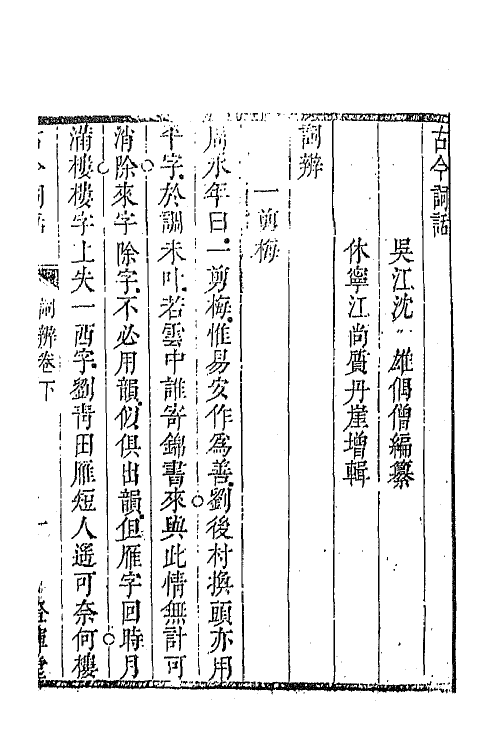 古今詞話
吳江沈　雄偶僧編纂
休寧江尚質丹崖增輯
詞辨
一剪梅
周永年曰一剪梅惟易安作爲善劉後村換頭亦用
平字於調未叶若雲中誰寄錦書來與此情無計可
消除來字除字不必用韻似俱出韻但雁字回時月
滿樓樓字上失一西字劉靑田雁短人遙可奈何樓
古今詞話
詞辨卷下
一